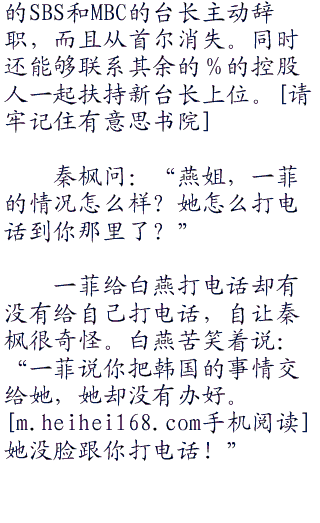 的SBS和MBC的台长主动辞
职，而且从首尔消失。同时
还能够联系其余的％的控股
人一起扶持新台长上位。[请
牢记住有意思书院]
秦枫问：“燕姐，一菲
的情况怎么样？她怎么打电
话到你那里了？”
一菲给白燕打电话却有
没有给自己打电话，自让秦
枫很奇怪。白燕苦笑着说：
“一菲说你把韩国的事情交
给她，她却没有办好。
[m.heihei168.com手机阅读]
她没脸跟你打电话！”